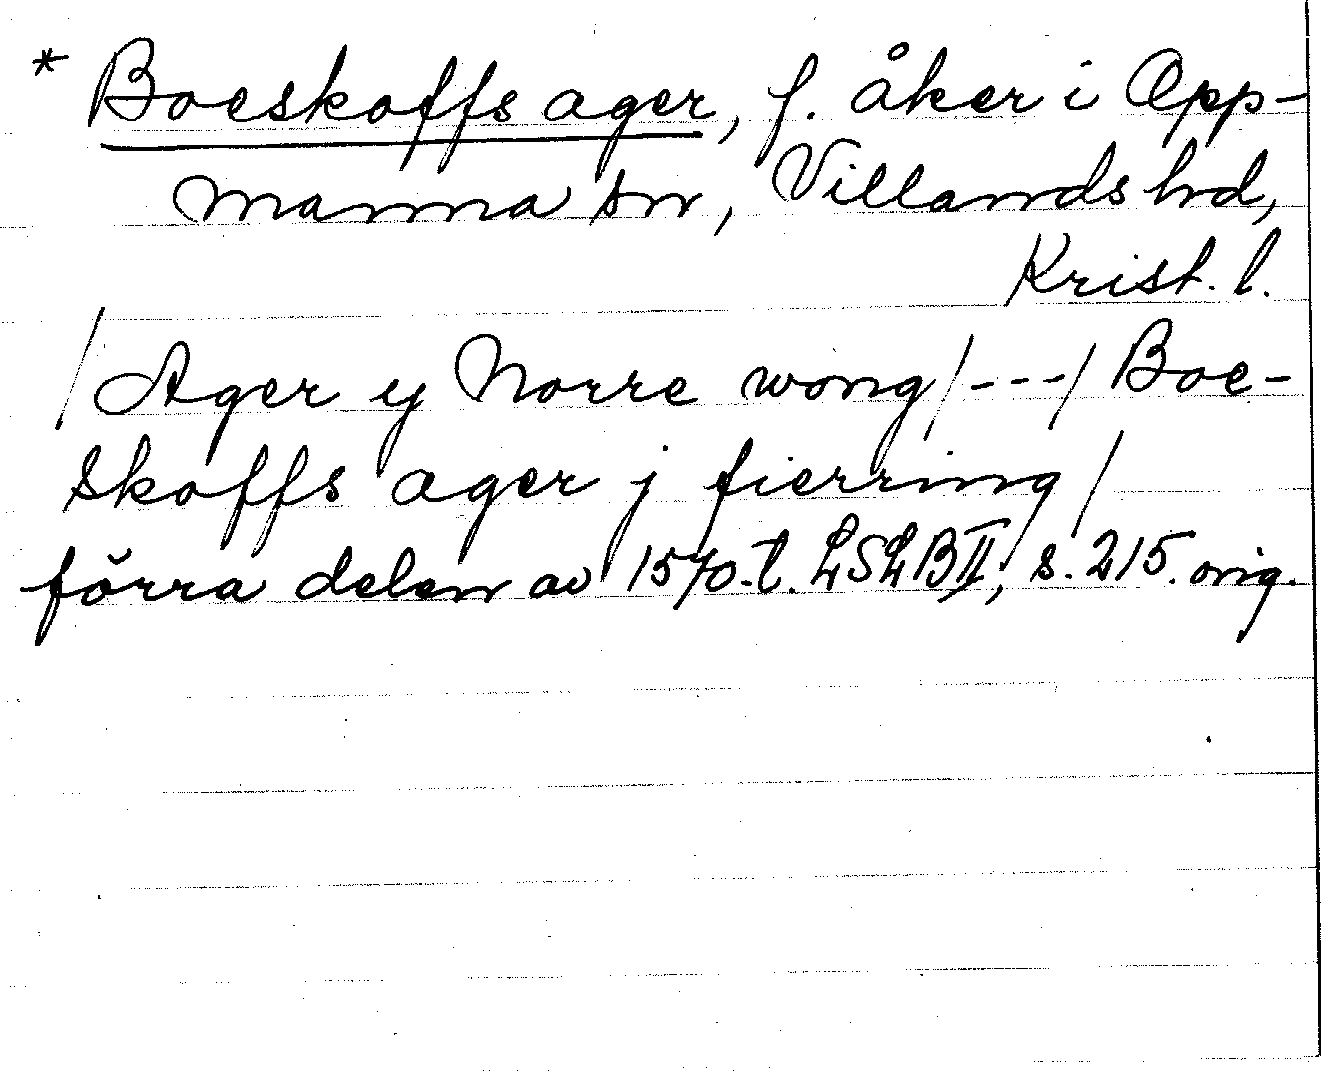 * Boeskoffs ager, f. åker i Opp-
manna sn, Villands hd,
Krist. l.
/Ager y Norre wong/---/Boe-
skoffs ager j fierring/
förra delen av 1570-t. LSLB II, s. 215. orig.